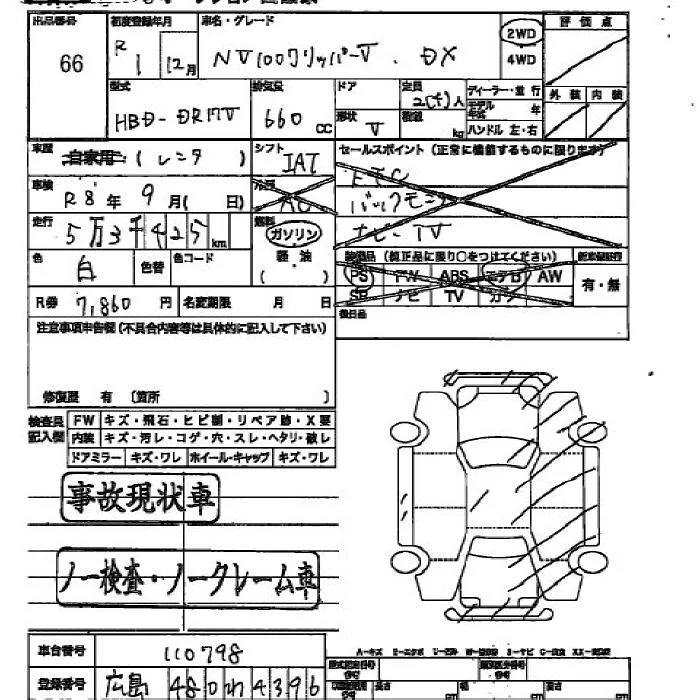 出品番号 初度登録年月 車名・グレード 評価点
66 R 1 12月 NV100クリッパーV . DX 2WD
4WD
型式 排気量 ドア 定員 ディーラー・並行 外装 内装
HBD-DR17V 660 CC 形状 V 積載 kg 2(4)人 モデル年式 年
ハンドル 左・右
車歴 自家用 (レンタ) シフト IAT セールスポイント(正常に機能するものに限ります)
車検 R8年 9月( 日) 冷房 AC ETC
バックモニター
走行 5万3千425km 燃料 ガソリン ナビ TV
軽油
( )
色 白 色替 色コード 装備品(純正品に限り○をつけてください) 新車保証書
PS PW ABS エアB AW 有・無
SR ナビ TV カワ
R券 7,860円 名変期限 月 日 後日品
注意事項申告欄(不具合内容等は具体的に記入して下さい)
修復歴 有 〔箇所 〕
検査員記入欄 FW キズ・飛石・ヒビ割・リペア跡・X要
内装 キズ・汚レ・コゲ・穴・スレ・ヘタリ・破レ
ドアミラー キズ・ワレ ホイール・キャップ キズ・ワレ
事故現状車
ノー検査・ノークレーム車
車台番号 110798
登録番号 広島 480 わ 4396
型式指定番号 類別区分番号
長さ cm 幅 cm 高さ cm